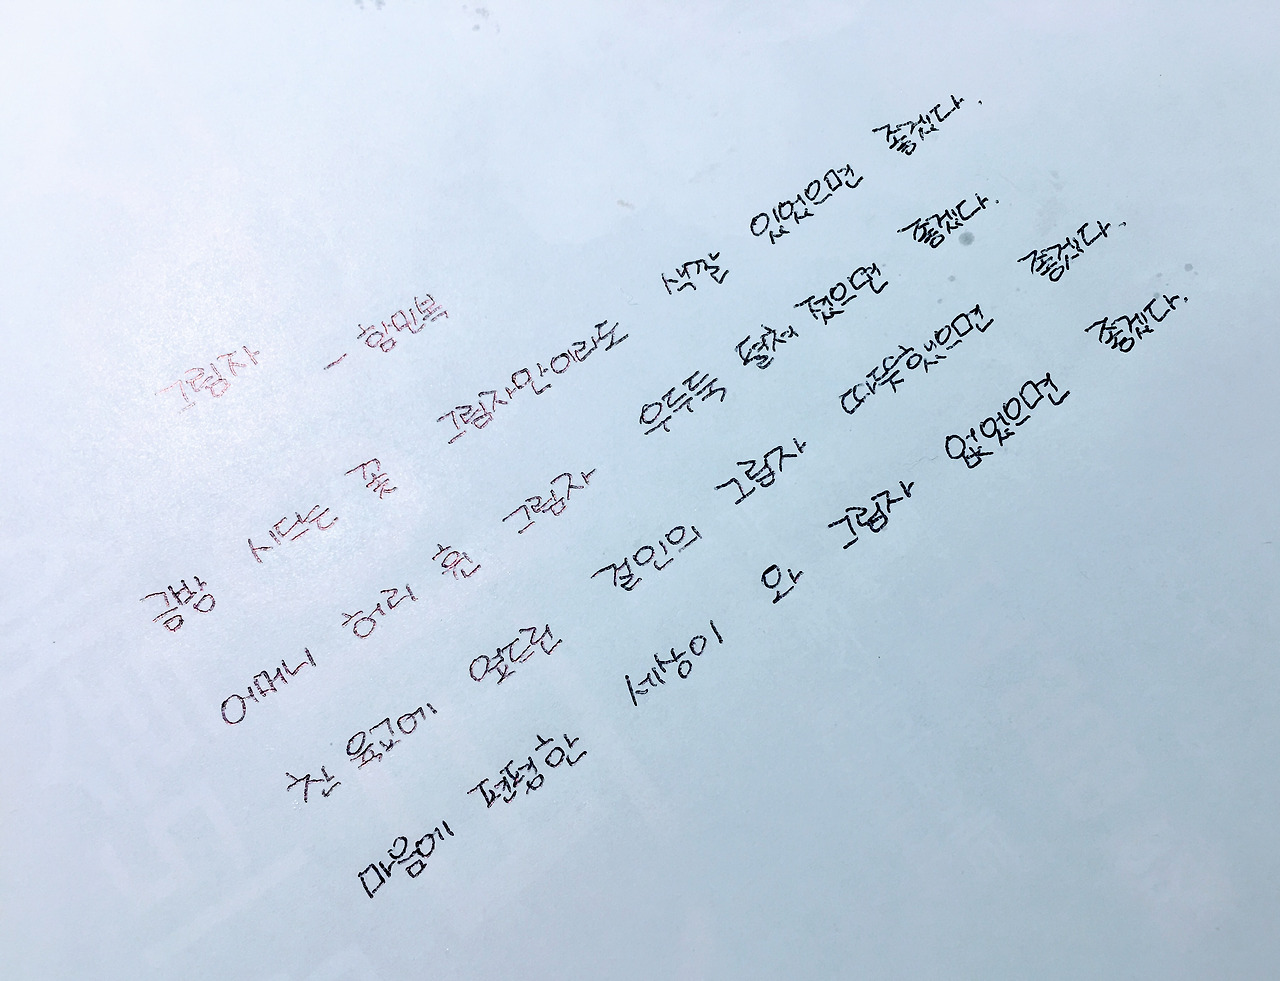 그림자 - 함민복
금방 시드는 꽃 그림자만이라도 색깔 있었으면 좋겠다.
어머니 허리 휜 그림자 우두둑 펼쳐졌으면 좋겠다.
찬 육교에 엎드린 걸인의 그림자 따뜻했으면 좋겠다.
마음에 평평한 세상이 와 그림자 없었으면 좋겠다.